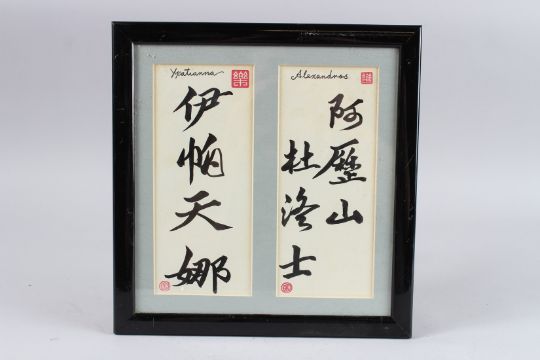 Ypatianna
樂
伊帕天娜
Alexandros
阿歷山
杜洛士